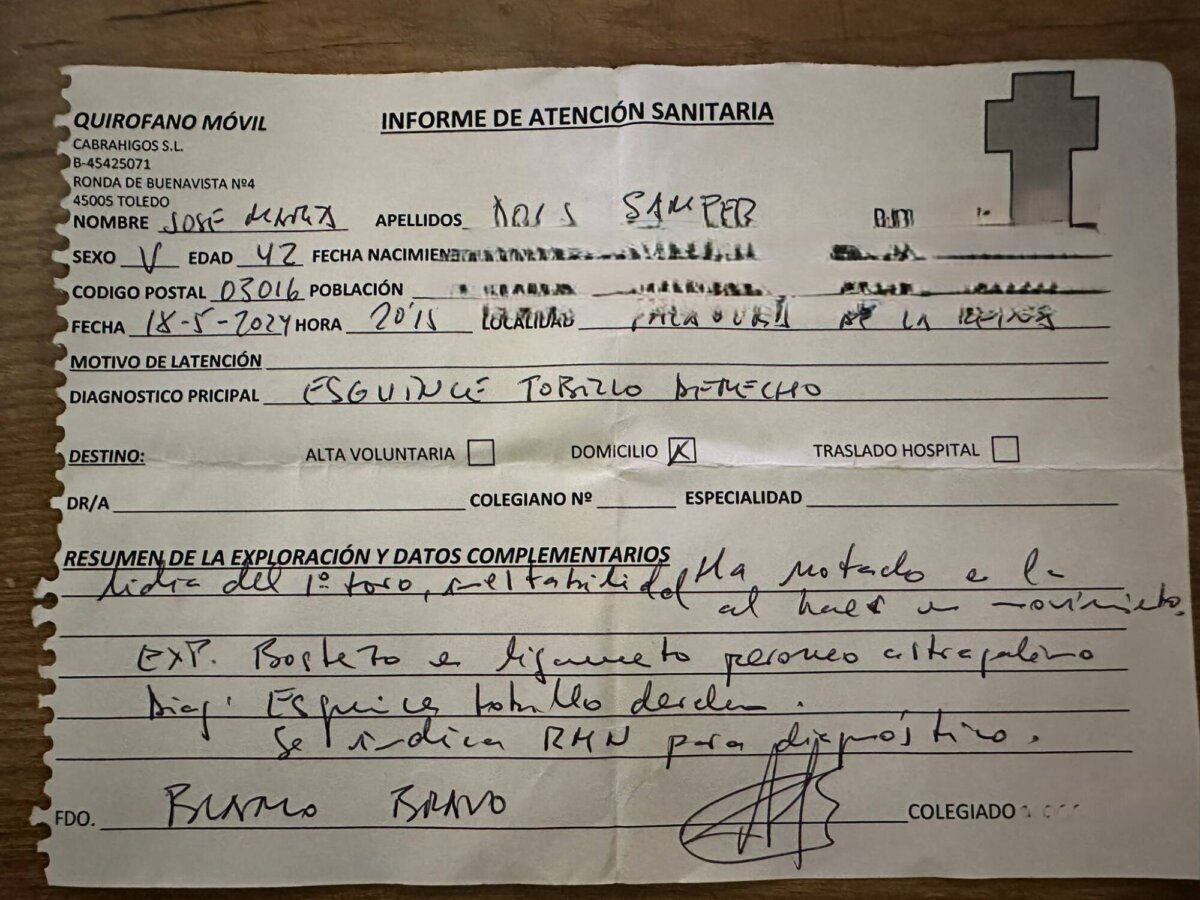 QUIROFANO MÓVIL
INFORME DE ATENCIÓN SANITARIA
CABRAHIGOS S.L.
B-45425071
RONDA DE BUENAVISTA Nº4
45005 TOLEDO
NOMBRE JOSE MARIA APELLIDOS SAMPER
SEXO V EDAD 42 FECHA NACIMIEN
CODIGO POSTAL 03016 POBLACIÓN
FECHA 18-5-2024 HORA 20'15 LOCALIDAD DE LA
MOTIVO DE LATENCIÓN
DIAGNOSTICO PRICIPAL ESGUINCE TOBILLO DERECHO
DESTINO: ALTA VOLUNTARIA DOMICILIO X TRASLADO HOSPITAL
DR/A COLEGIANO Nº ESPECIALIDAD
RESUMEN DE LA EXPLORACIÓN Y DATOS COMPLEMENTARIOS Ha notado e la
lidia del 1º toro, inestabilidad al hacer un movimiento.
EXP. Bostezo e ligamento peroneo astragalino
Diag: Esguince tobillo derecho.
Se indica RMN para diagnóstico.
FDO. BLANCO BRAVO COLEGIADO